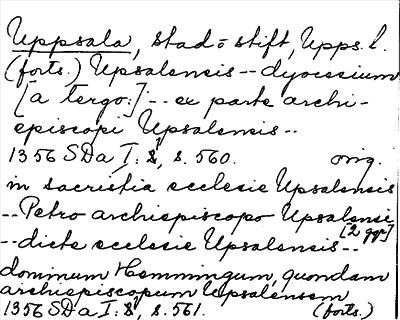 Uppsala, stad o stift, Upps. l.
(forts.) Upsalensis -- dyocesium
[a tergo:] -- ex parte archi-
episcopi Upsalensis --
1356 SDa I: 8, s. 560. orig.
in sacristia ecclesie Upsalensis
-- Petro archiepiscopo Upsalensi
[2 ggr]
-- dicte ecclesie Upsalensis --
dominum Hemmingum, quondam
archiepiscopum Upsalensem
1356 SDa I: 8, s. 561. (forts.)